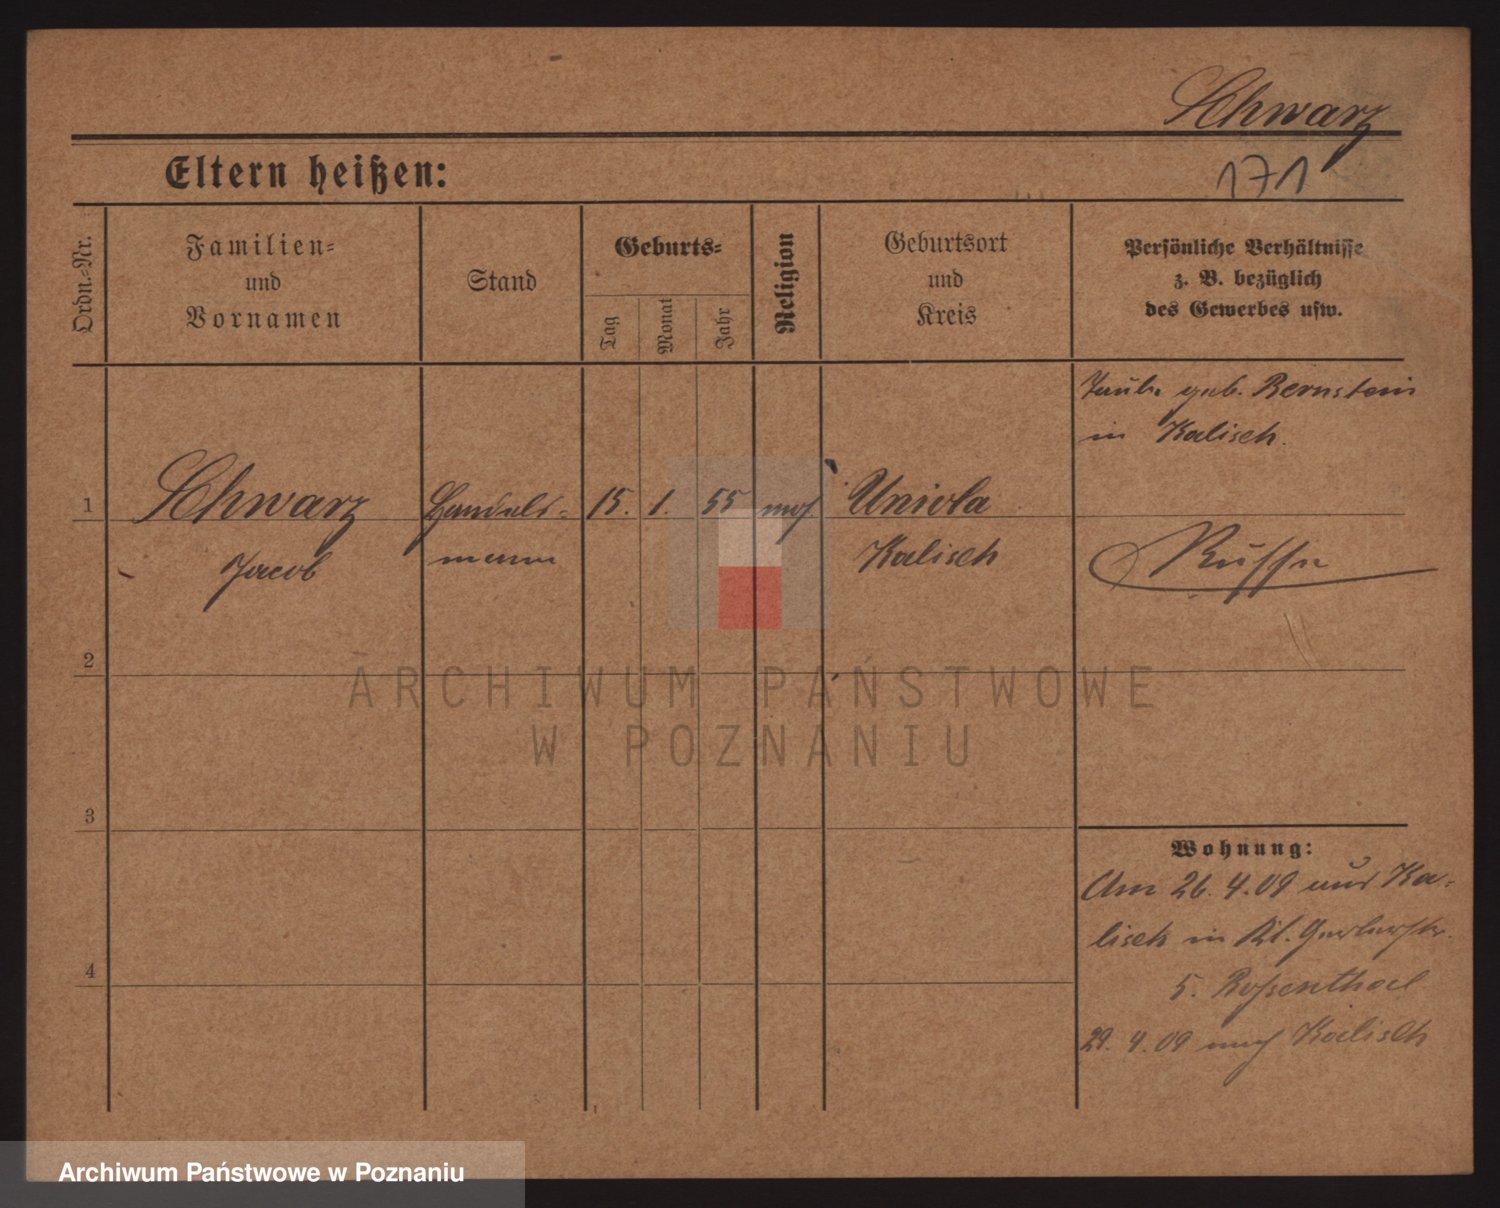 Schwarz
171
Eltern heißen:
Ordn.-Nr.
Familien-
und
Vornamen
Stand
Geburts-
Tag
Monat
Jahr
Religion
Geburtsort
und
Kreis
Persönliche Verhältnisse
z. B. bezüglich
des Gewerbes usw.
Taube geb. Bernstein
in Kalisch.
1
Schwarz
Jacob
Handels-
mann
15.
1.
55
mos
Uniola
Kalisch
Russe
2
3
4
Wohnung:
Am 26.4.09 aus Ka-
lisch in Kl. Gerberstr.
5. Rosenthal
29.4.09 nach Kalisch
ARCHIWUM PAŃSTWOWE
W POZNANIU
Archiwum Państwowe w Poznaniu